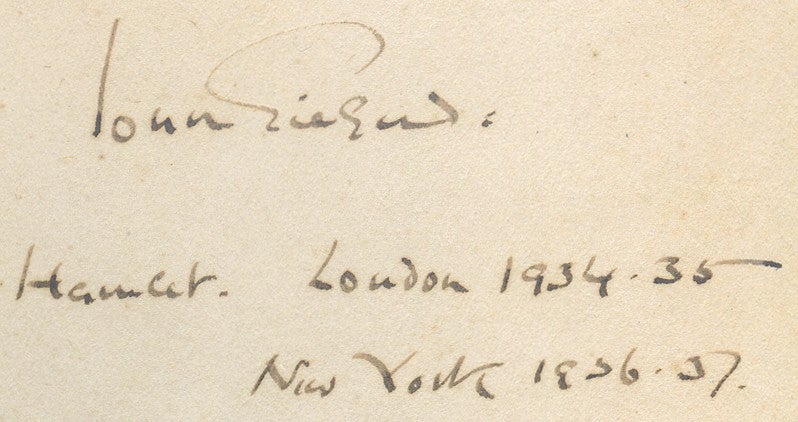 John Gielgud.
Hamlet. London 1934.35
New York 1936.37.